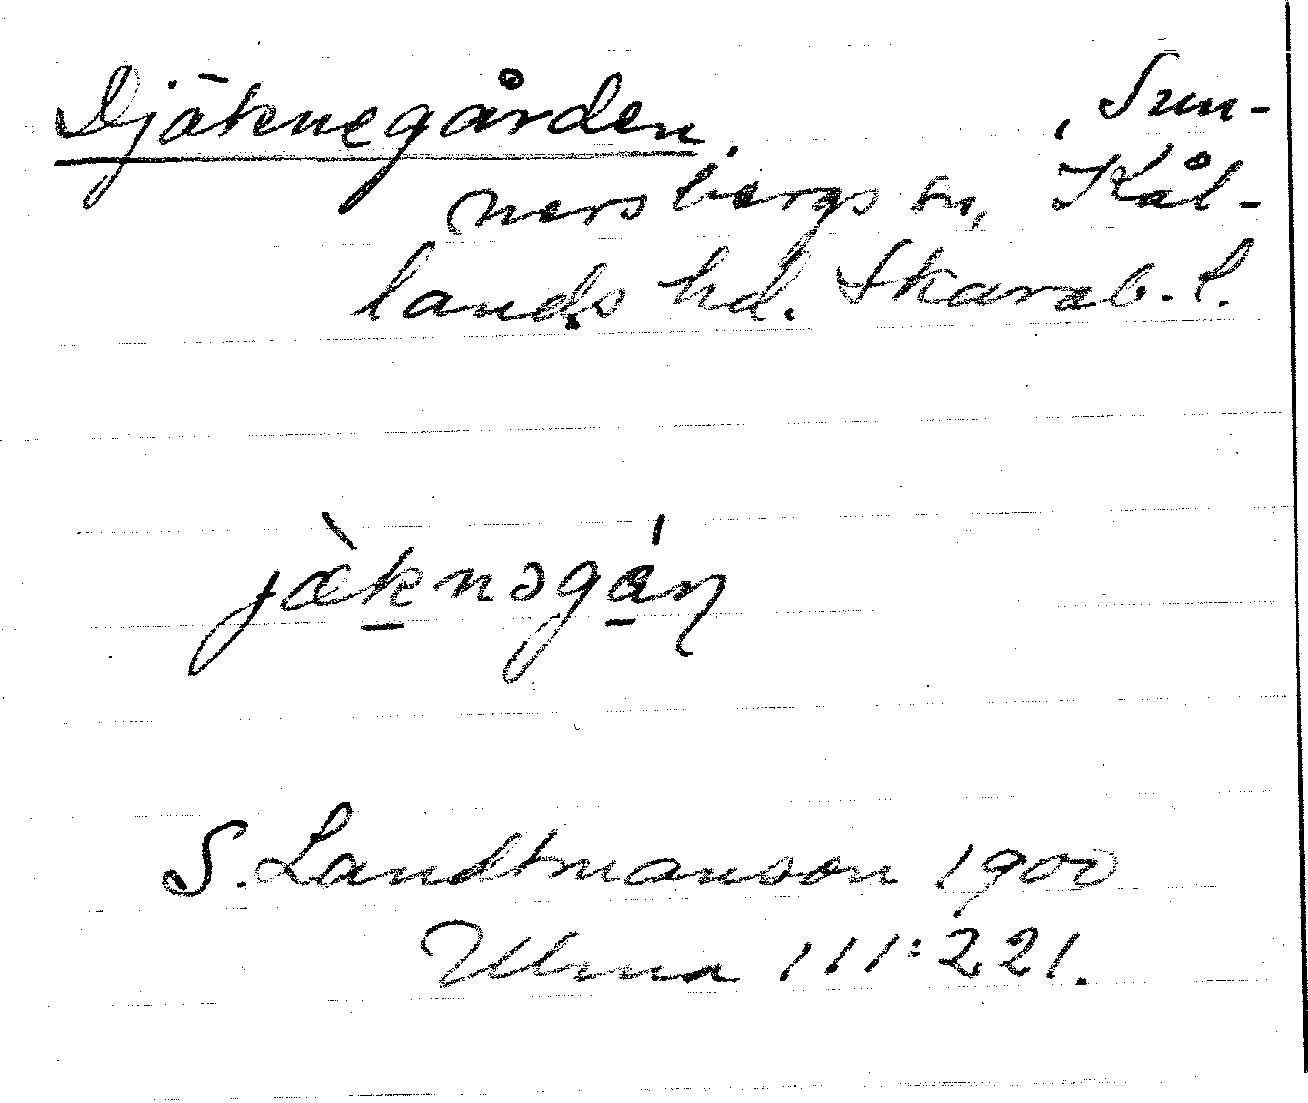 Djäknegården, Sun-
nersbergs sn, Kål-
lands hd. Skarab. l.
jæ̀knəgán
S. Landtmanson 1900
Ulma 111:221.